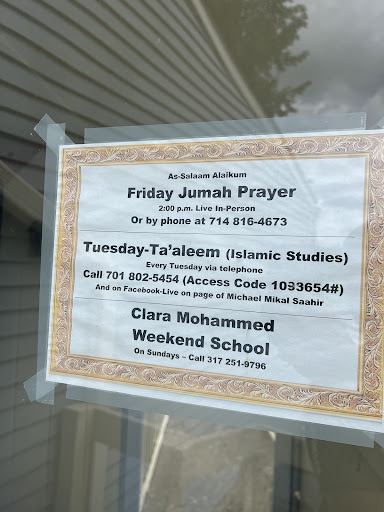 As-Salaam Alaikum
Friday Jumah Prayer
2:00 p.m. Live In-Person
Or by phone at 714 816-4673
Tuesday-Ta'aleem (Islamic Studies)
Every Tuesday via telephone
Call 701 802-5454 (Access Code 1093654#)
And on Facebook-Live on page of Michael Mikal Saahir
Clara Mohammed
Weekend School
On Sundays – Call 317 251-9796